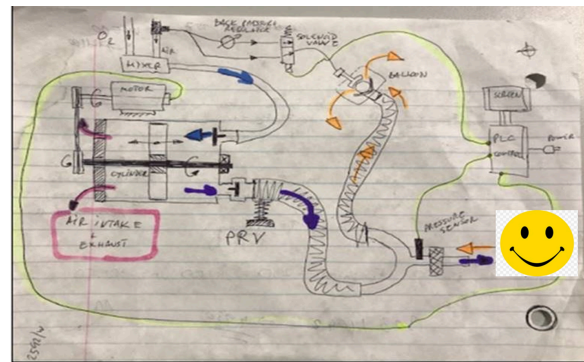 O2
AIR
MIXER
BACK PRESSURE
REGULATOR
SOLENOID
VALVE
BALLOON
MOTOR
SCREEN
PLC
CONTROL
POWER
CYLINDER
AIR INTAKE
+
EXHAUST
PRV
PRESSURE
SENSOR